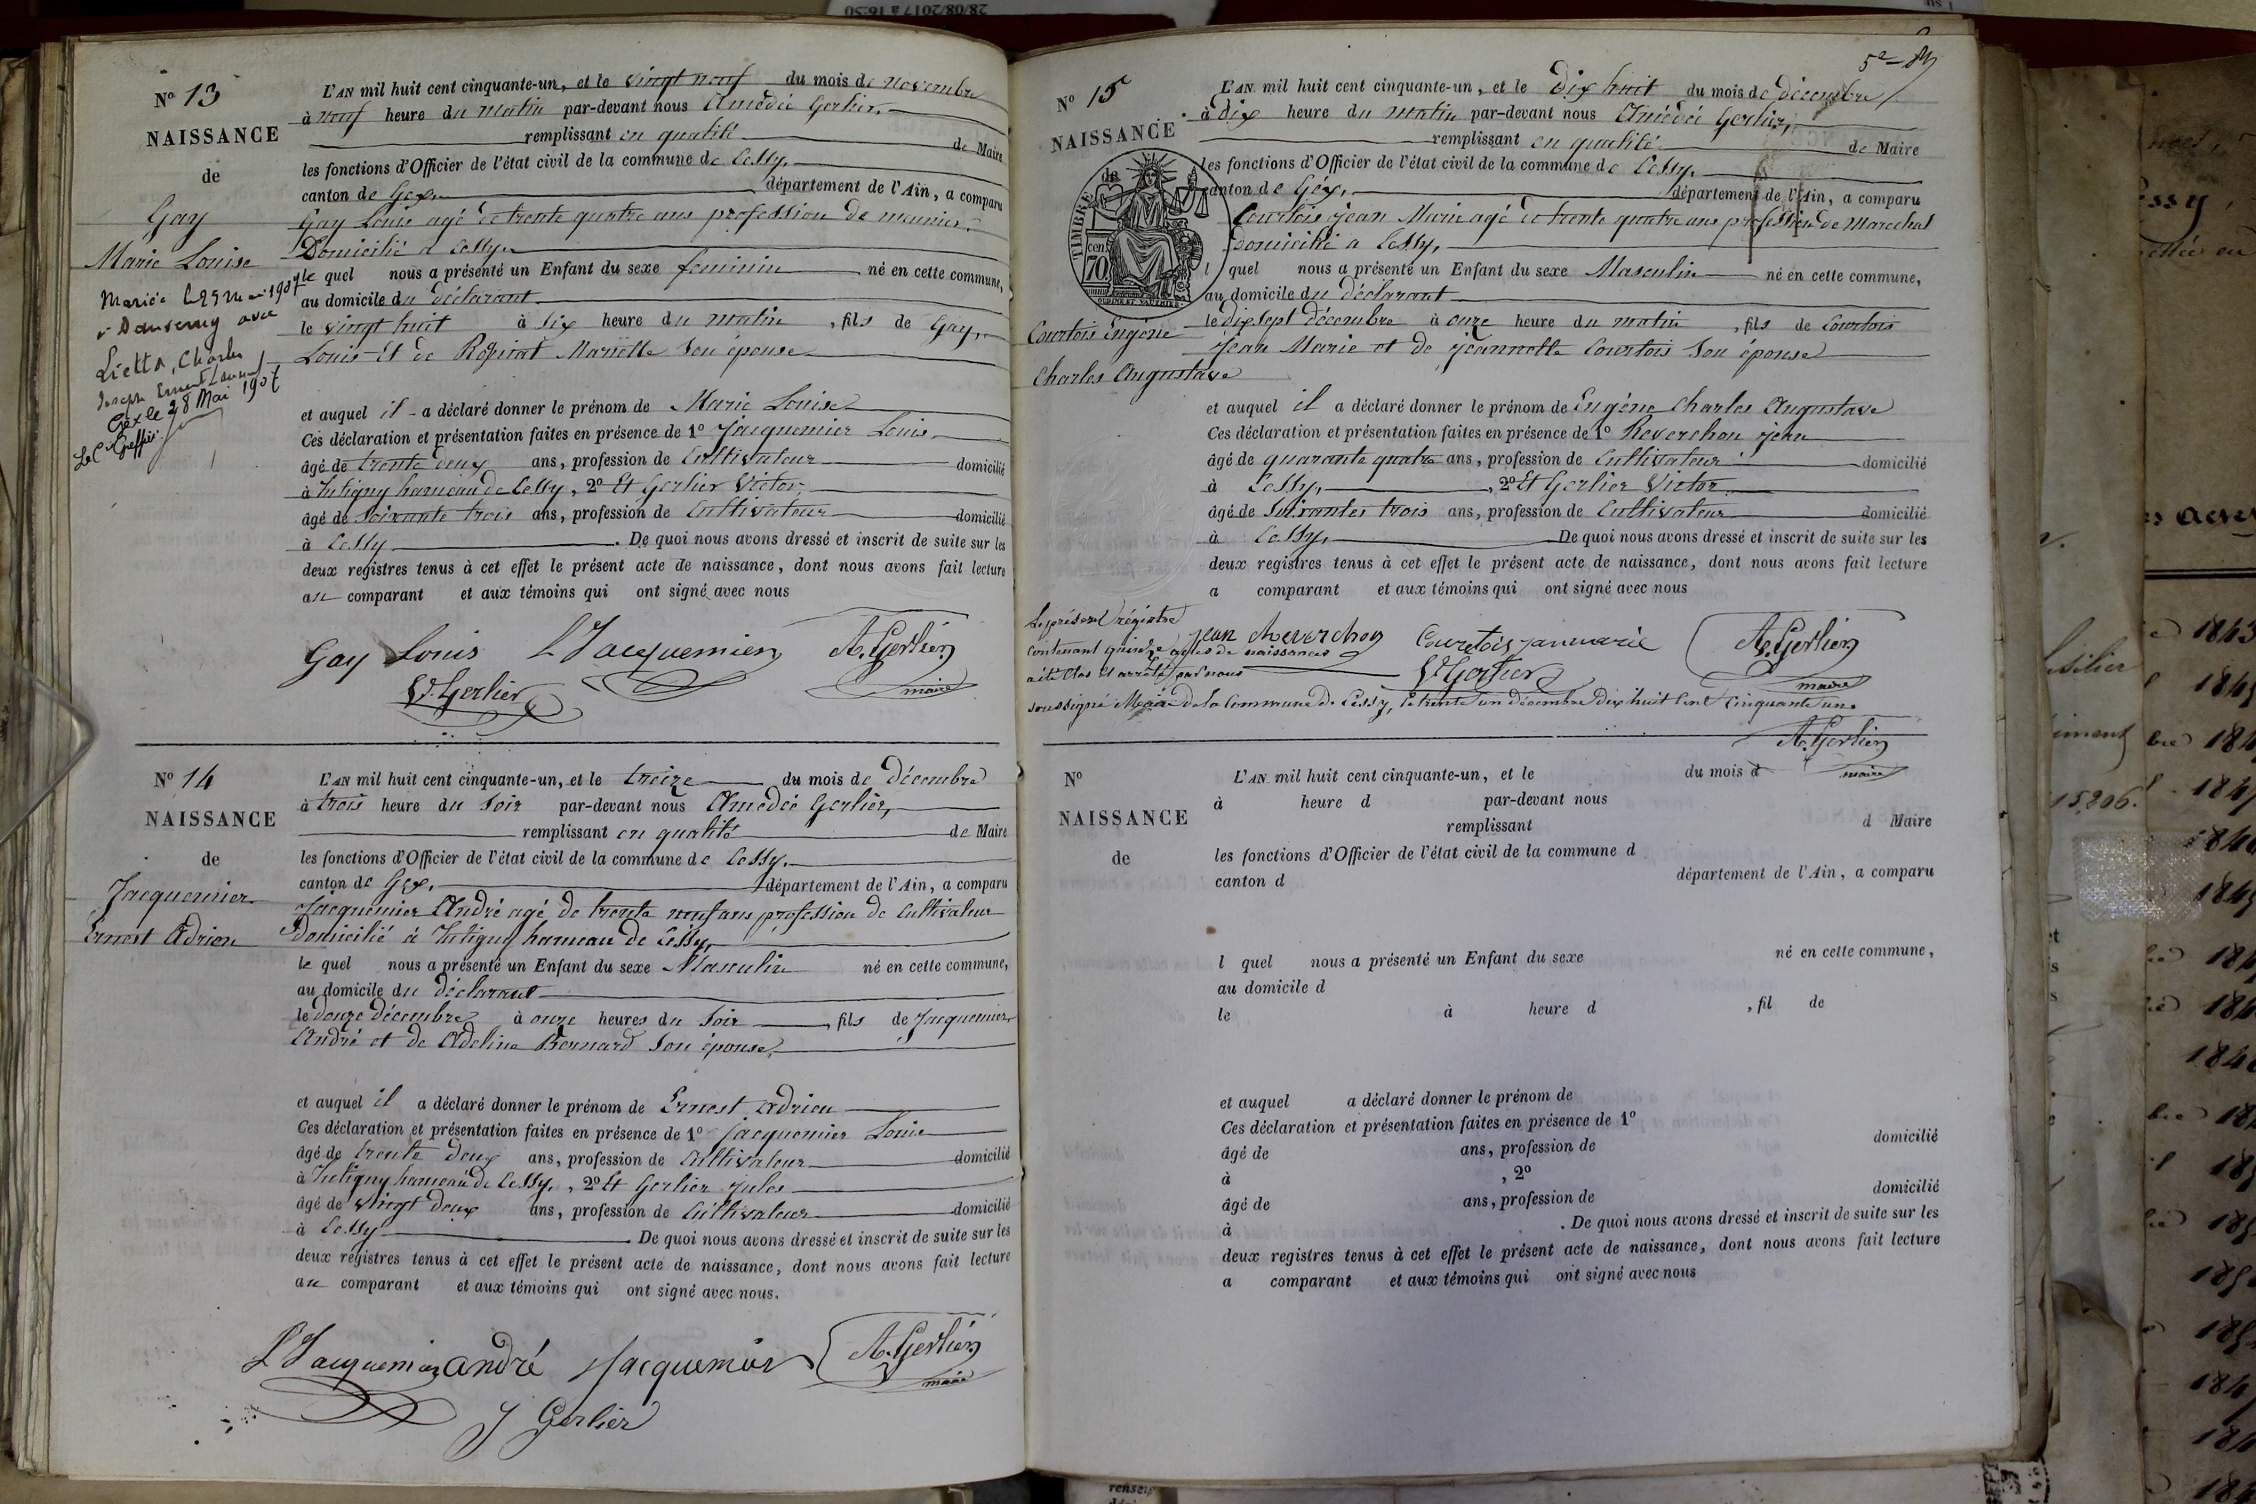 28/08/2017 à 16:50
N° 13
NAISSANCE
de
Gay
Marie Louise
Mariée le 25 Mai 1907
à avec
Lietta, Charles
Joseph Ernest Laurent
Gex le 28 Mai 1907
Le Cis Greffier
L'AN mil huit cent cinquante-un, et le vingt neuf du mois de novembre
à neuf heure du matin par-devant nous Amédée Gerlier,
remplissant en qualité de Maire
les fonctions d'Officier de l'état civil de la commune de Cessy,
canton de Gex, département de l'Ain, a comparu
Gay Louis agé de trente quatre ans profession de meunier
Domicilié à Cessy,
le quel nous a présenté un Enfant du sexe feminin né en cette commune,
au domicile du déclarant
le vingt huit à six heure du matin, fils de Gay,
Louis et de Mariette son épouse
et auquel il a déclaré donner le prénom de Marie Louise
Ces déclaration et présentation faites en présence de 1° Jacquemier Louis
âgé de trente deux ans, profession de Cultivateur domicilié
à Tutigny hameau de Cessy, 2° Et Gerlier Victor,
âgé de soixante trois ans, profession de Cultivateur domicilié
à Cessy. De quoi nous avons dressé et inscrit de suite sur les
deux registres tenus à cet effet le présent acte de naissance, dont nous avons fait lecture
au comparant et aux témoins qui ont signé avec nous
Gay Louis L Jacquemier A. Gerlier
V. Gerlier maire
N° 14
NAISSANCE
de
Jacquemier
Ernest Adrien
L'AN mil huit cent cinquante-un, et le treize du mois de décembre
à trois heure du soir par-devant nous Amédée Gerlier,
remplissant en qualité de Maire
les fonctions d'Officier de l'état civil de la commune de Cessy,
canton de Gex, département de l'Ain, a comparu
Jacquemier André agé de trente neuf ans profession de Cultivateur
Domicilié à Tutigny hameau de Cessy,
le quel nous a présenté un Enfant du sexe Masculin né en cette commune,
au domicile du déclarant
le douze décembre à onze heures du soir, fils de Jacquemier
André et de Adeline Bernard son épouse,
et auquel il a déclaré donner le prénom de Ernest Adrien
Ces déclaration et présentation faites en présence de 1° Jacquemier Louis
âgé de trente deux ans, profession de Cultivateur domicilié
à Tutigny hameau de Cessy, 2° Et Gerlier Jules
âgé de vingt deux ans, profession de Cultivateur domicilié
à Cessy. De quoi nous avons dressé et inscrit de suite sur les
deux registres tenus à cet effet le présent acte de naissance, dont nous avons fait lecture
au comparant et aux témoins qui ont signé avec nous.
L Jacquemier andré Jacquemier A. Gerlier
maire
J Gerlier
N° 15
NAISSANCE
de
TIMBRE
cen
70
Courtois Eugène
Charles Augustave
L'AN mil huit cent cinquante-un, et le Dix huit du mois de décembre
à dix heure du matin par-devant nous Amédée Gerlier,
remplissant en qualité de Maire
les fonctions d'Officier de l'état civil de la commune de Cessy,
canton de Géx, département de l'Ain, a comparu
Courtois jean Marie agé de trente quatre ans profession de Marechal
Domicilié a Cessy,
l quel nous a présenté un Enfant du sexe Masculin né en cette commune,
au domicile du déclarant
le dix sept décembre à onze heure du matin, fils de Courtois
jean Marie et de jeannette Courtois son épouse
et auquel il a déclaré donner le prénom de Eugène Charles Augustave
Ces déclaration et présentation faites en présence de 1° Reverchon jean
âgé de quarante quatre ans, profession de Cultivateur domicilié
à Cessy, 2° Et Gerlier Victor
âgé de soixantes trois ans, profession de Cultivateur domicilié
à Cessy, De quoi nous avons dressé et inscrit de suite sur les
deux registres tenus à cet effet le présent acte de naissance, dont nous avons fait lecture
a comparant et aux témoins qui ont signé avec nous
jean Reverchon Courtois janmarie A. Gerlier
V Gerlier maire
Le présent régistre
contenant quinze actes de naissances
a été clos et arrêté par nous
soussigné Maire de la Commune de Cessy, le trente un décembre dix huit cent cinquante un.
A. Gerlier
maire
N°
NAISSANCE
de
L'AN mil huit cent cinquante-un, et le du mois d
à heure d par-devant nous
remplissant d Maire
les fonctions d'Officier de l'état civil de la commune d
canton d département de l'Ain, a comparu
l quel nous a présenté un Enfant du sexe né en cette commune,
au domicile d
le à heure d , fil de
et auquel a déclaré donner le prénom de
Ces déclaration et présentation faites en présence de 1°
âgé de ans, profession de domicilié
à , 2°
âgé de ans, profession de domicilié
à . De quoi nous avons dressé et inscrit de suite sur les
deux registres tenus à cet effet le présent acte de naissance, dont nous avons fait lecture
a comparant et aux témoins qui ont signé avec nous